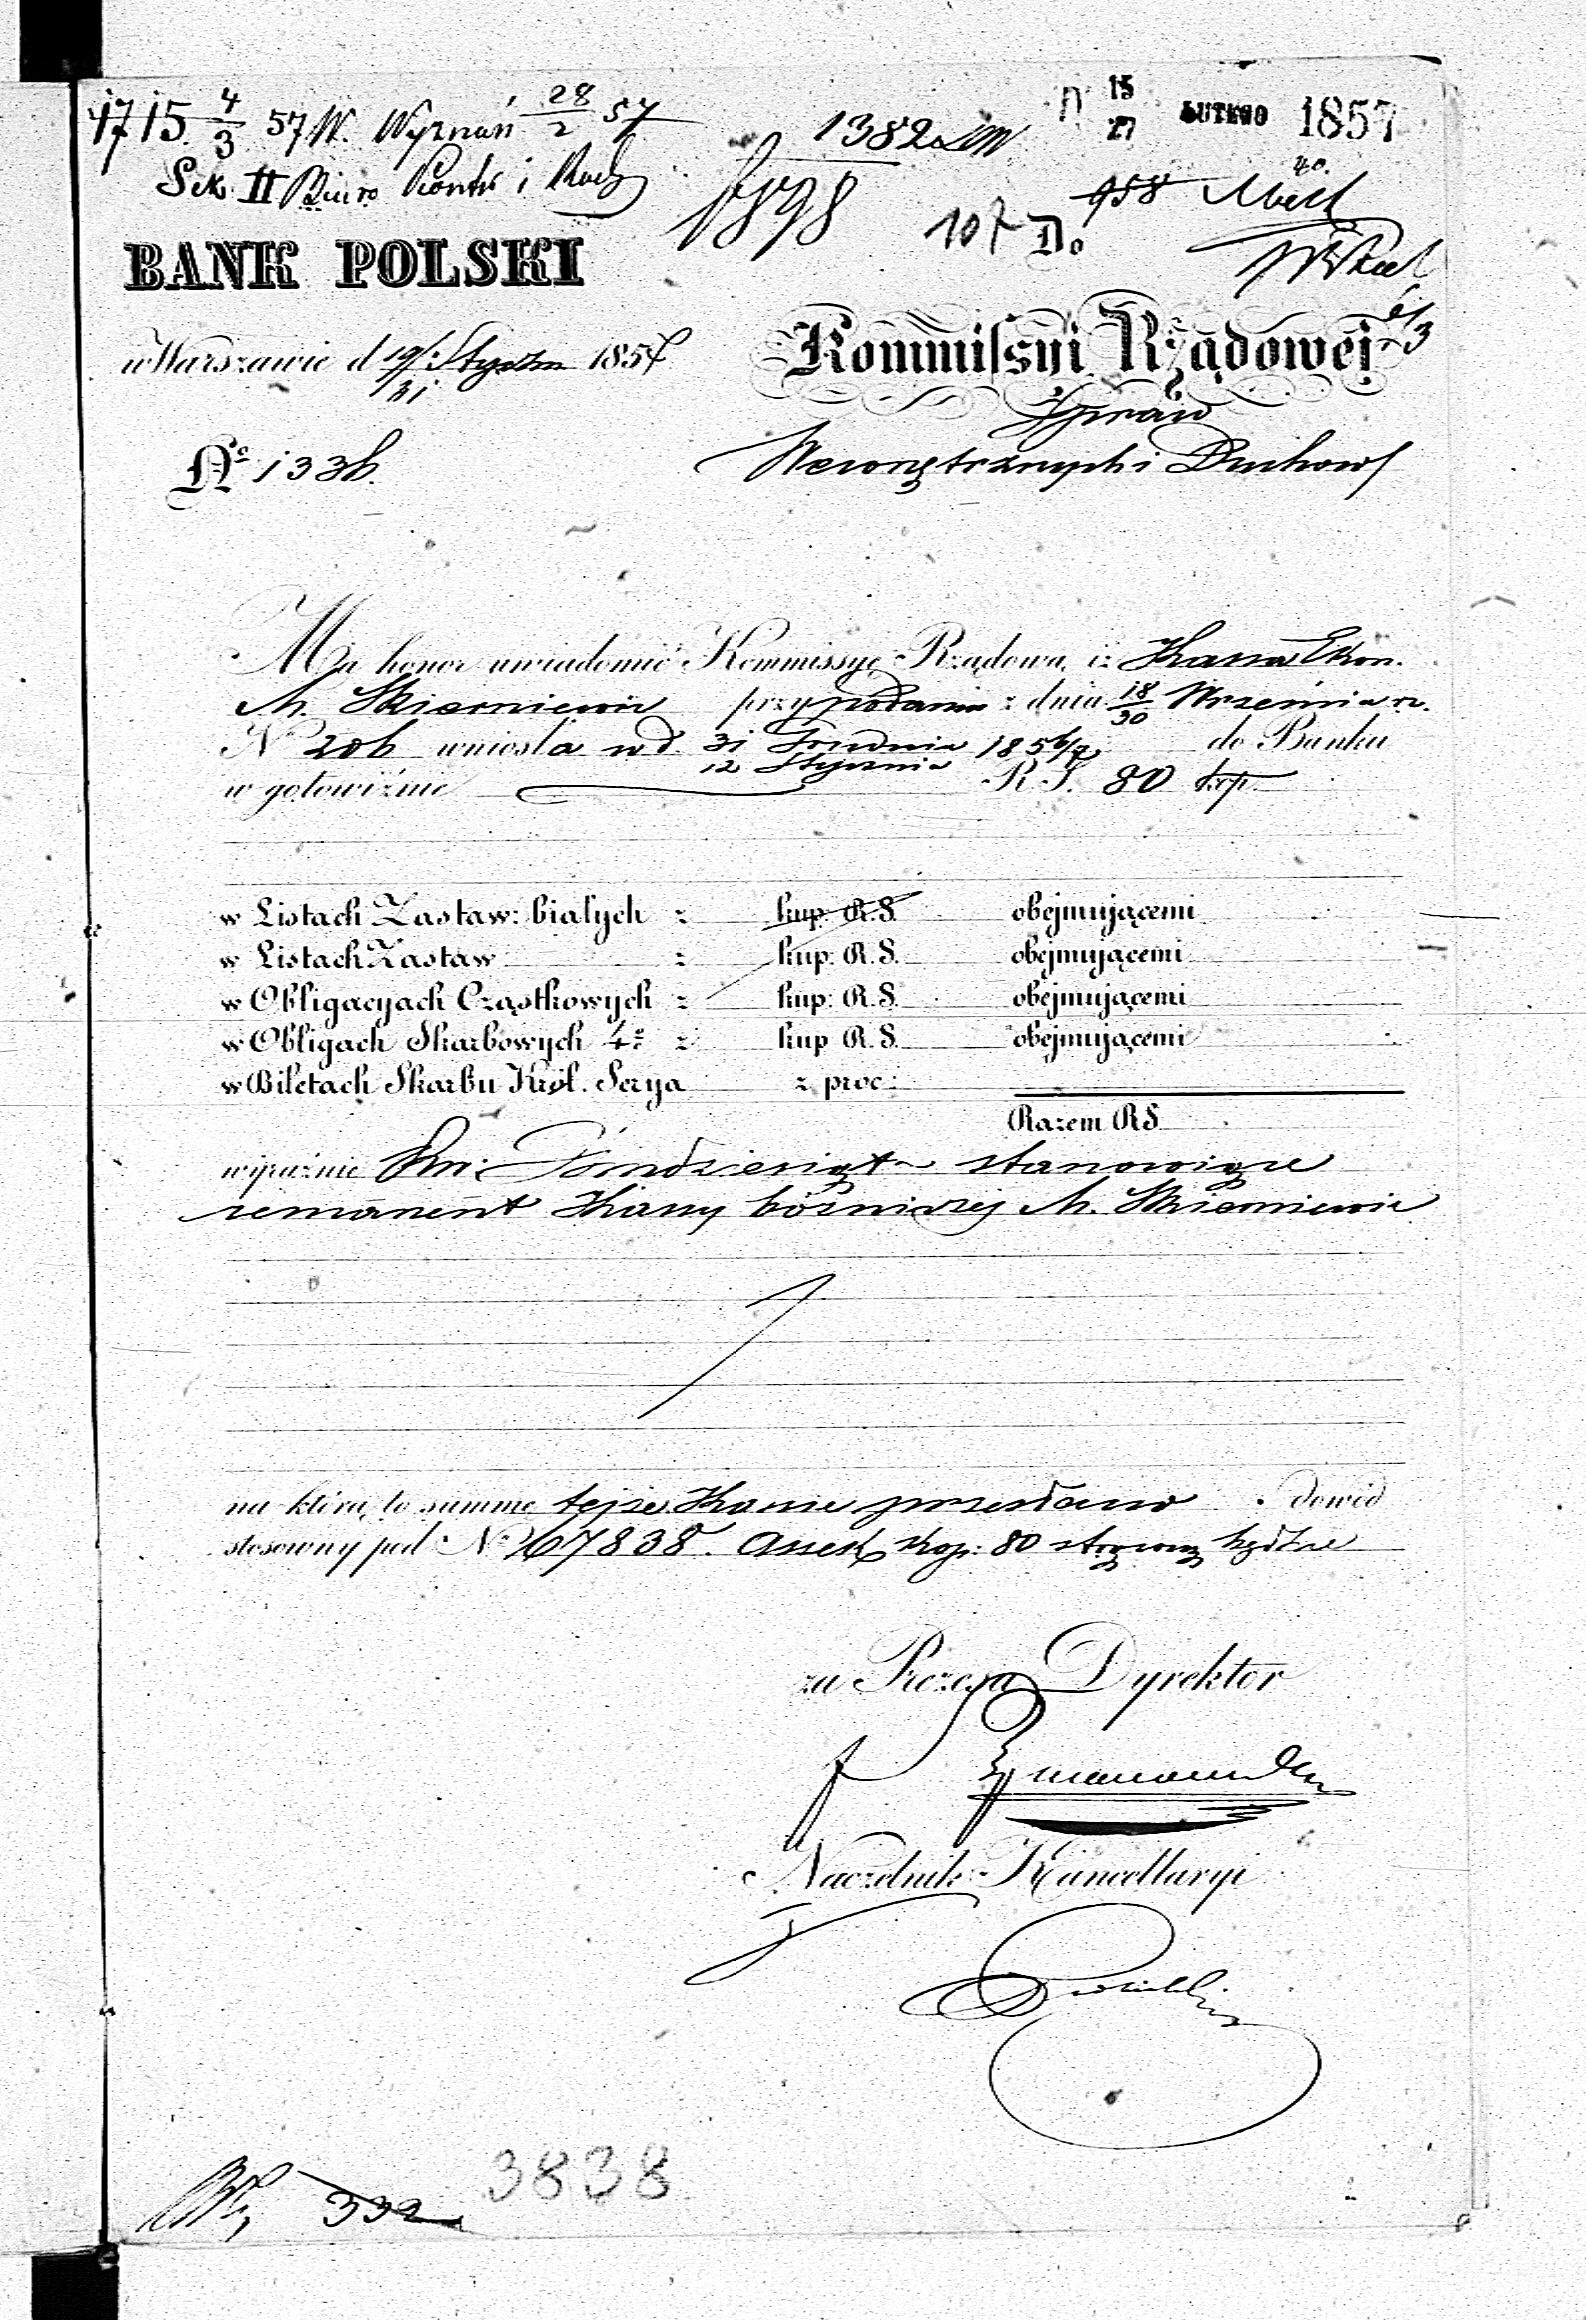 1715 4/3 57 W. Wyznań 28/2 57
Sek. II Biuro Kontr i Rach
1382
15/27 LUTEGO 1857
958
1898
107 Do
BANK POLSKI
w Warszawie d 19/31 Styczn 1857
Kommissyi Rządowej
Spraw
Wewnętrznych i Duchow
No 1336.
Ma honor uwiadomić Kommissyę Rządową, iż Kassa Ekon.
M. Skierniewic przy podaniu z dnia 18/30 Września r.
N 206 wniosła w d. 31 Grudnia / 12 Stycznia 1856/7 do Banku
w gotowiźnie R. S. 80 kop.
w Listach Zastaw: białych z kup. R.S. obejmującemi
w Listach Zastaw z kup. R.S. obejmującemi
w Obligacyach Cząstkowych z kup: R.S. obejmującemi
w Obligach Skarbowych 4% z kup R.S. obejmującemi
w Biletach Skarbu Król. Serya z proc:
Razem RS
wyraźnie Ośmdziesiąt stanowiące
remanent Kassy bóżniczej M. Skierniewic
na którą to summę tejże Kassie przesłano dowód
stosowny pod No 67838. Assek kop: 80 strąconą będzie
za Prezesa Dyrektor
Naczelnik Kancellaryi
3838
332